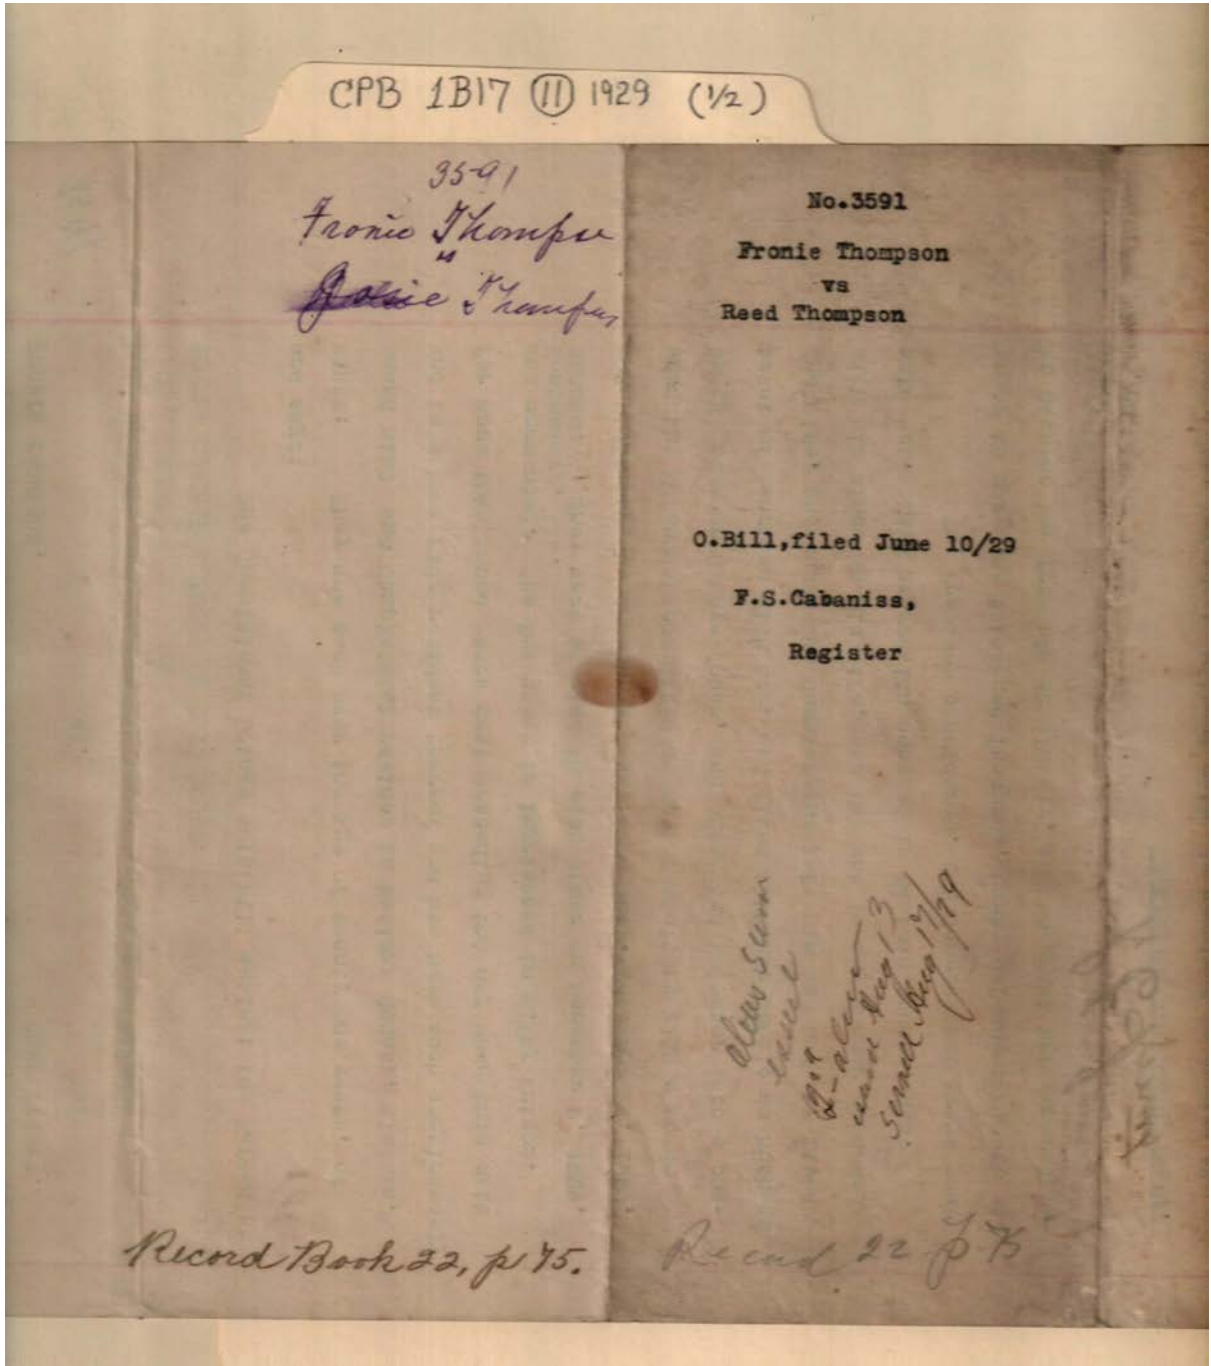 CPB 1B17 (11) 1929 (1/2)
3591
Fronie Thompson
vs
Thompson
No.3591
Fronie Thompson
vs
Reed Thompson
O.Bill,filed June 10/29
F.S.Cabaniss,
Register
alias Summ
issued
1929
issued Aug 13
Served Aug 17/29
Record Book 22, p 75.
Record 22 p 75